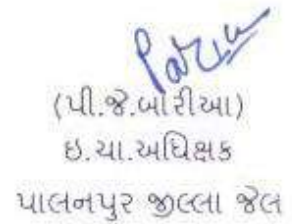 (પી.જે.બારીઆ)
ઇ.ચા.અધિક્ષક
પાલનપુર જીલ્લા જેલ